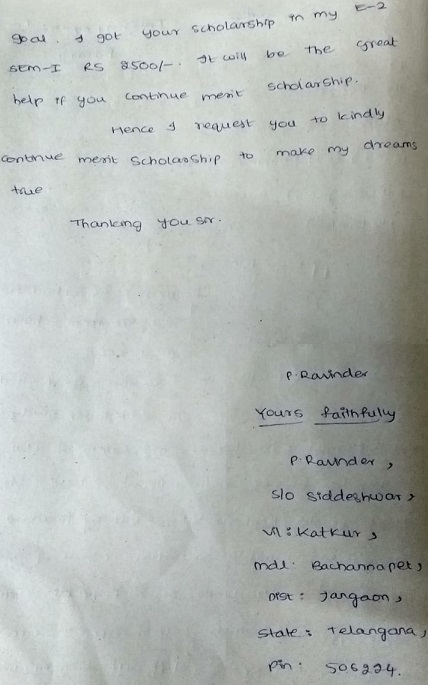 goal. I got your scholarship in my E-2
sem-I RS 8500/-. It will be the great
help if you continue merit scholarship.
Hence I request you to kindly
continue merit Scholarship to make my dreams
true
Thanking you sir.
P. Ravinder
Yours faithfully
P. Ravinder,
S/o Siddeshwar,
Vil: Katkur,
mdl: Bachannapet,
Dist: Jangaon,
State: Telangana,
Pin: 506224.